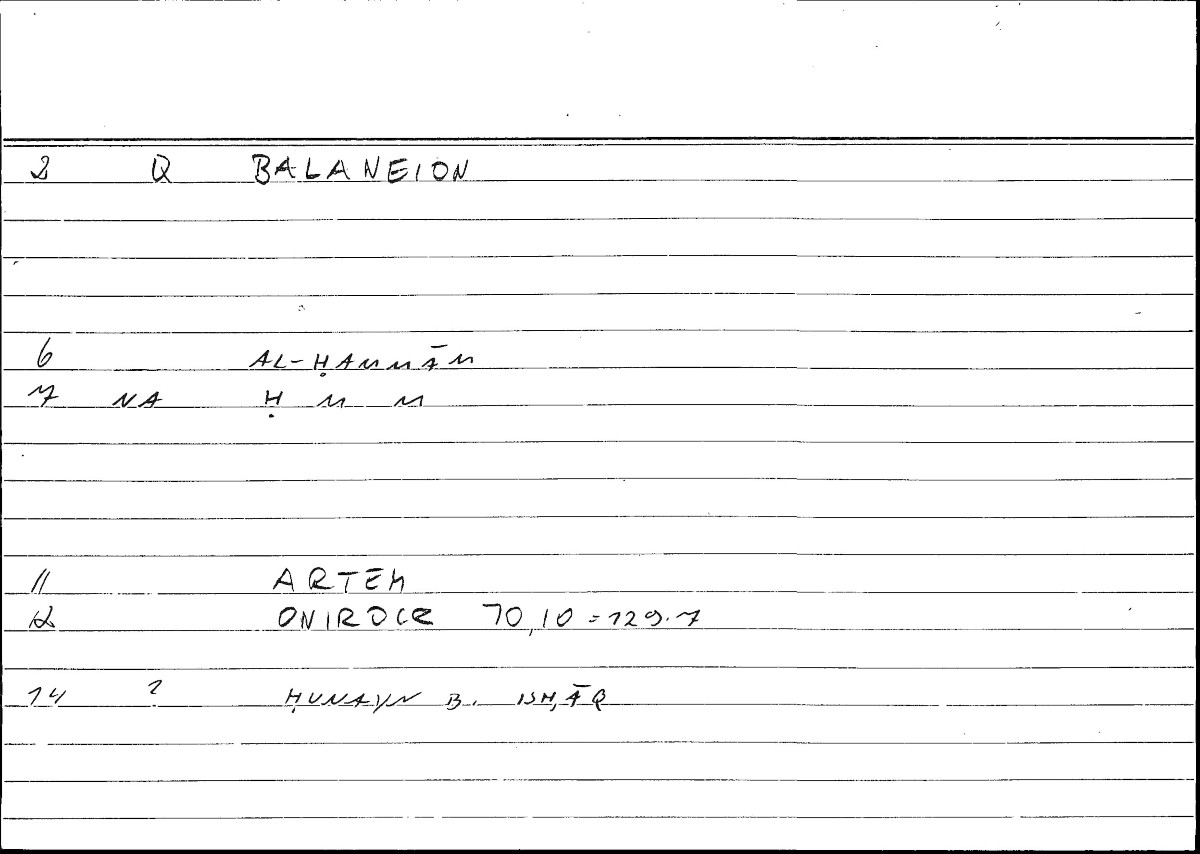 2 Q BALANEION
6 AL-ḤAMMĀM
7 NA Ḥ M M
11 ARTEM
12 ONIROCR 70,10 = 129.7
14 ? ḤUNAYN B. ISḤĀQ